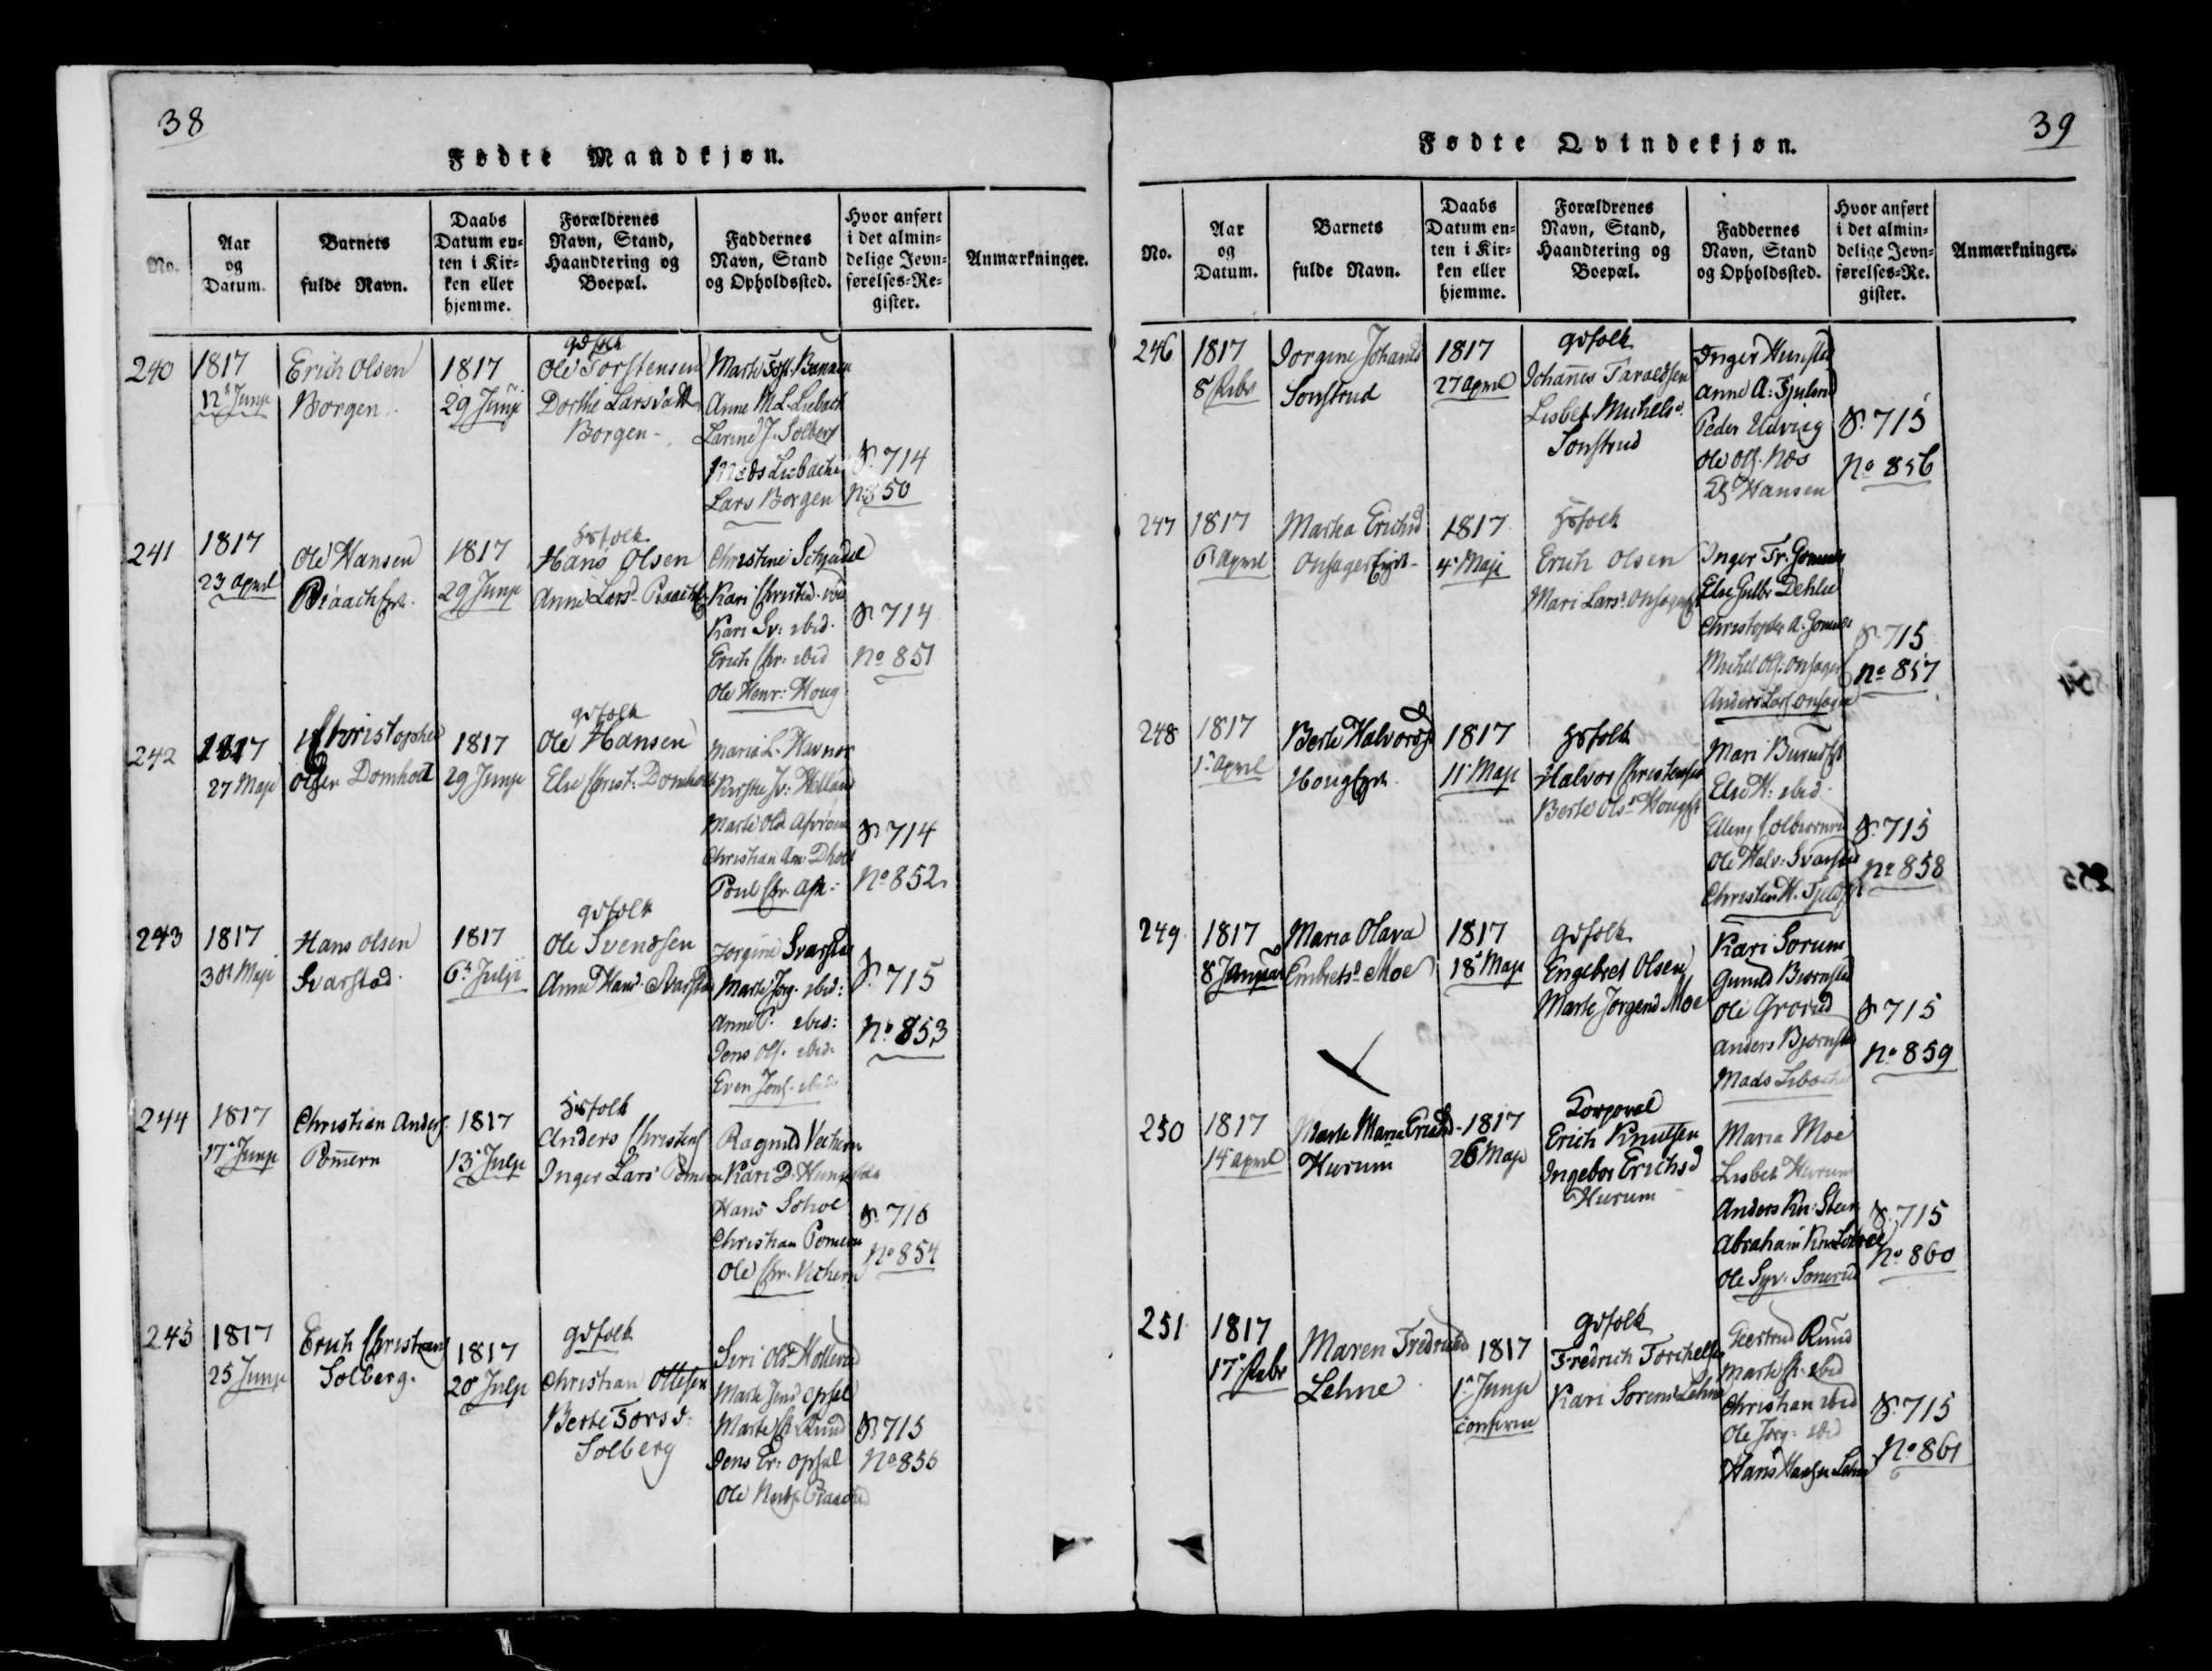 38
Fødte Mandkjøn.
No.
Aar
og
Datum.
Barnets
fulde Navn.
Daabs
Datum en-
ten i Kir-
ken eller
hjemme.
Forældrenes
Navn, Stand,
Haandtering og
Boepæl.
Faddernes
Navn, Stand
og Opholdssted.
Hvor anført
i det almin-
delige Jevn-
førelses-Re-
gister.
Anmærkninger.
240
1817
12 Junji
Erich Olsen
Borgen
1817
29 Junji
Gdfolk
Ole Torstensen
Dorthe Larsdatt
Borgen
Anne M. L. Liebach
J. Solberg
Mads Liebach
Lars Borgen
S. 714
No 850
241
1817
23 April
Ole Hansen
1817
29 Junji
Hsfolk
Hans Olsen
Anne Larsd
Christine
Kari
Kari Sv: ibid.
Erich Chr: ibid
Ole Henr: Houg
S. 714
No 851
242
1817
27 Maji
Christopher
Olsen Domholt
1817
29 Junji
Gdfolk
Ole Hansen
Else Christ: Domholt
Maria L. Havnor
Marte
Christian Am. Dholt
Poul Chr.
S. 714
No 852
243
1817
30t Maji
Hans Olsen
Svarstad
1817
6t Julji
Gdfolk
Ole Svendsen
Anne Hansd. Svarstad
Jorgine Svarstad
Marte Jorg. ibid:
Anne P. ibid:
Jens Ols. ibid:
Even Jens. ibid:
S. 715
No 853
244
1817
17 Junji
Christian Anders.
Pom̄ern
1817
13 Julji
Hsfolk
Anders Christens
Inger Larsd Pomern
Ragnild Vechern
Kari D.
Hans Sohoel
Christian Pomern
Ole Chr. Vechern
S. 716
No 854
245
1817
25 Junji
Erich Christians
Solberg.
1817
20 Julji
Gdfolk
Christian Ottesen
Berte Torsd.
Solberg
Siri Olsd
Marte Jensd Opsal
Marte Chr. Rund
Jens Er: Opsal
Ole
S. 715
No 855
39
Fødte Qvindekjøn.
No.
Aar
og
Datum.
Barnets
fulde Navn.
Daabs
Datum en-
ten i Kir-
ken eller
hjemme.
Forældrenes
Navn, Stand,
Haandtering og
Boepæl.
Faddernes
Navn, Stand
og Opholdssted.
Hvor anført
i det almin-
delige Jevn-
førelses-Re-
gister.
Anmærkninger.
246
1817
8
Jorgine Johansd
Sonstrud
1817
27 April
Gdfolk
Johan̄es Taraldsen
Lisbet Michelsd.
Sonstrud
Inger
Anne A:
Peder
Ole Ols. Næs
Hansen
S. 715
No 856
247
1817
6 April
Martha Erichsd
1817
4 Maji
Hsfolk
Erich Olsen
Mari Larsd.
Inger Fr.
Else Gulbr. Dehlie
Christopher A.
Michel Ols:
Anders Lars
S. 715
No 857
248
1817
1 April
Berte Halvorsd
1817
11 Maji
Hsfolk
Halvor Christensen
Berte Olsd
Mari
Else H: ibid.
Elling
Ole Halv: Svarstad
Christen H.
S. 715
No 858
249
1817
8 Januar
Maria Olava
Embretsd Moe
1817
18 Maji
Gdfolk
Engebret Olsen
Marte Jorgensd Moe
Kari Sorum
Gunild
Ole Grorud
Anders
Mads
S. 715
No 859
250
1817
14 April
Marte Maria Erichsd
Hurum
1817
26 Maji
Korporal
Erich Knutsen
Ingebor Erichsd
Hurum
Maria Moe
Lisbet Hurum
Anders Kn: Steen
Abraham Kn.
Ole Syv: Sonerud
S. 715
No 860
251
1817
17
Maren Fredrichsd
Lehne
1817
1 Junji
confirm
Gdfolk
Fredrich Torchelsen
Kari Sorensd Lehne
Geertrud Rund
Marte Chr. ibid
Christian ibid
Ole Jorg: ibid
Hans Hansen Lehne
S. 715
No 861